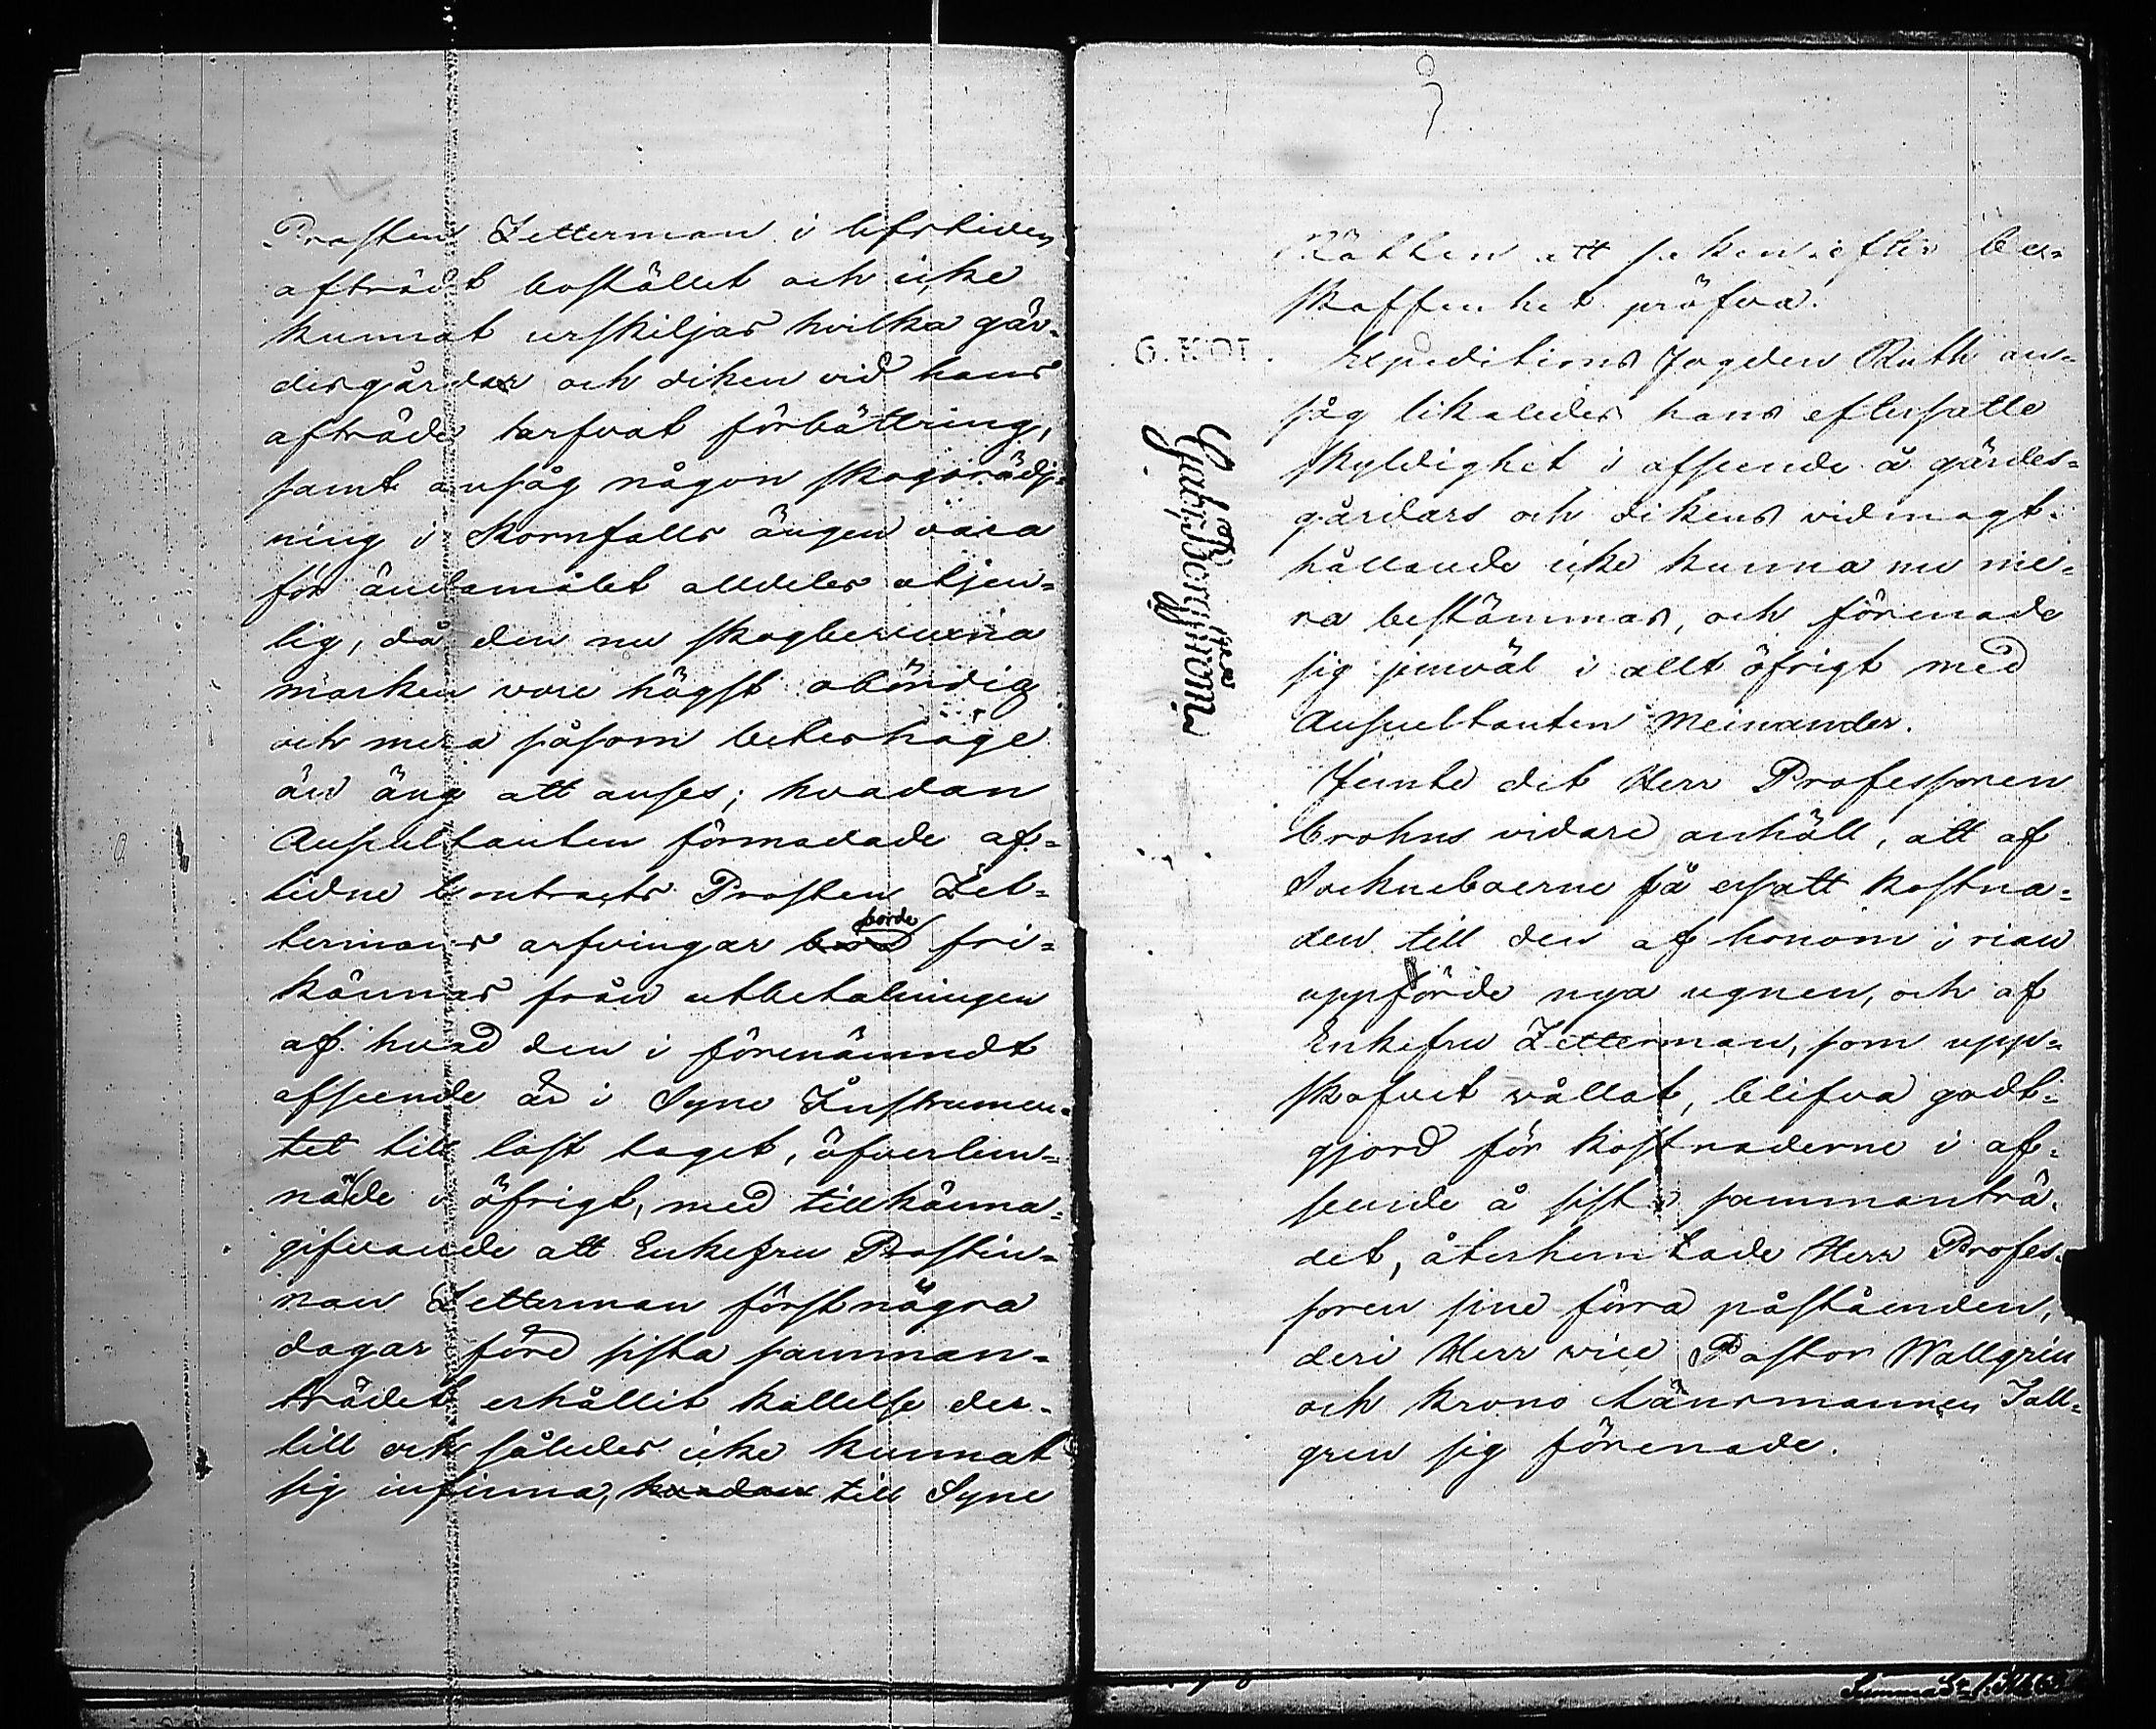 Prosten Zetterman i lifstiden
afträdt bostället och icke
kunnat urskiljas hvilka gär-
desgårdar och diken vid hans
afträde tarfvat förbättring,
samt ansåg någon skogsrödj-
ning i Kornfalls ängen vara
för ändamålet alldeles otjen-
lig, då den nu skogbevuxna
marken vore högst obördig
och mera såsom beteshage
än äng att anses; hvadan
Auscultanten förmodade af-
lidne Contracts Prosten Zet-
termans arfvingar böra borde fri-
kännas från utbetalningen
af hvad den i förenämndt
afseende är i Syne Instrumen-
tet till last taget, öfverlem-
nade i öfrigt, med tillkänna-
gifvande att Enkefru Prostin-
nan Zetterman först några
dagar före sista samman-
trädet erhållit kallelse der-
till och således icke kunnat
sig infinna, hvadan till Syne
Rätten att saken efter be-
skaffenhet pröfva.
Expeditions Fogden Ruth an-
såg likaledes hans eftersatte
skyldighet i afseende å gärdes-
gårdars och dikens vidmagt-
hållande icke kunna nu me-
ra bestämmas, och förenade
sig jemväl i allt öfrigt med
Auscultanten Meinander.
Jemte det Herr Professoren
Crohns vidare anhöll, att af
Sockneboerne få ersatt kostna-
den till den af honom i rian
uppförde nya ugnen, och af
Enkefru Zetterman, som upp-
skofvet vållat, blifva godt-
gjord för kostnaderne i af-
seende å sista sammanträ-
det, återhemtade Herr Profes-
soren sine förra påståenden,
deri Herr vice Pastor Wallgren
och Krono Länsmannen Tall-
gren sig förenade.